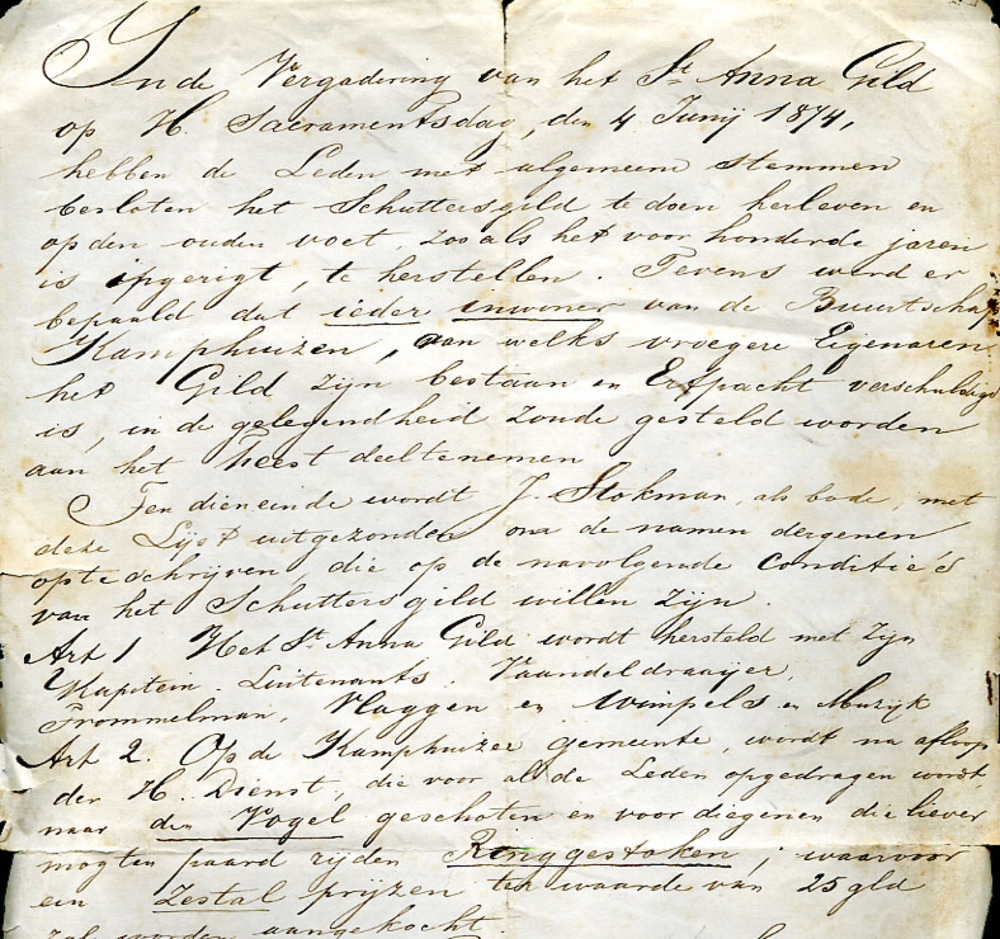 In de Vergadering van het St Anna Gild
op H. Sacramentsdag, den 4 Junij 1874,
hebben de Leden met algemeene stemmen
besloten het Schuttersgild te doen herleven en
op den ouden voet, zooals het voor honderde jaren
is opgerigt, te herstellen. Tevens werd er
bepaald dat ieder inwoner van de Buurtschap
Kamphuizen, aan welks vroegere Eigenaren
het Gild zijn bestaan en Erfpacht verschuldigd
is, in de gelegendheid zoude gesteld worden
aan het Feest deeltenemen
Ten dien einde wordt J. Stokman, als bode, met
deze Lijst uitgezonden om de namen dergenen
opteschrijven, die op de navolgende Conditie's
van het Schuttersgild willen zijn.
Art 1 Het St Anna Gild wordt hersteld met zijn
Kapitein. Luitenants. Vaandeldraaijer,
Trommelman, Vlaggen en Wimpels en Muzijk
Art 2. Op de Kamphuizer gemeente, wordt na afloop
der H. Dienst, die voor al de Leden opgedragen wordt,
naar den Vogel geschoten en voor diegenen die liever
mogten paard rijden Ringgestoken; waarvoor
een Zestal prijzen ter waarde van 25 gld
zal worden aangekocht.